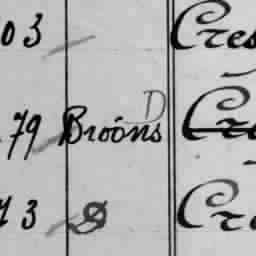 03 Cres
D
79 Broons Cre
73 D Cre